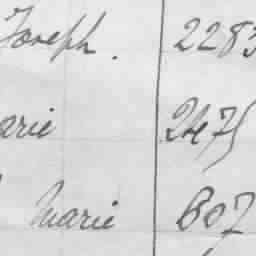 Joseph. 2283
arie 2475
Marie 607